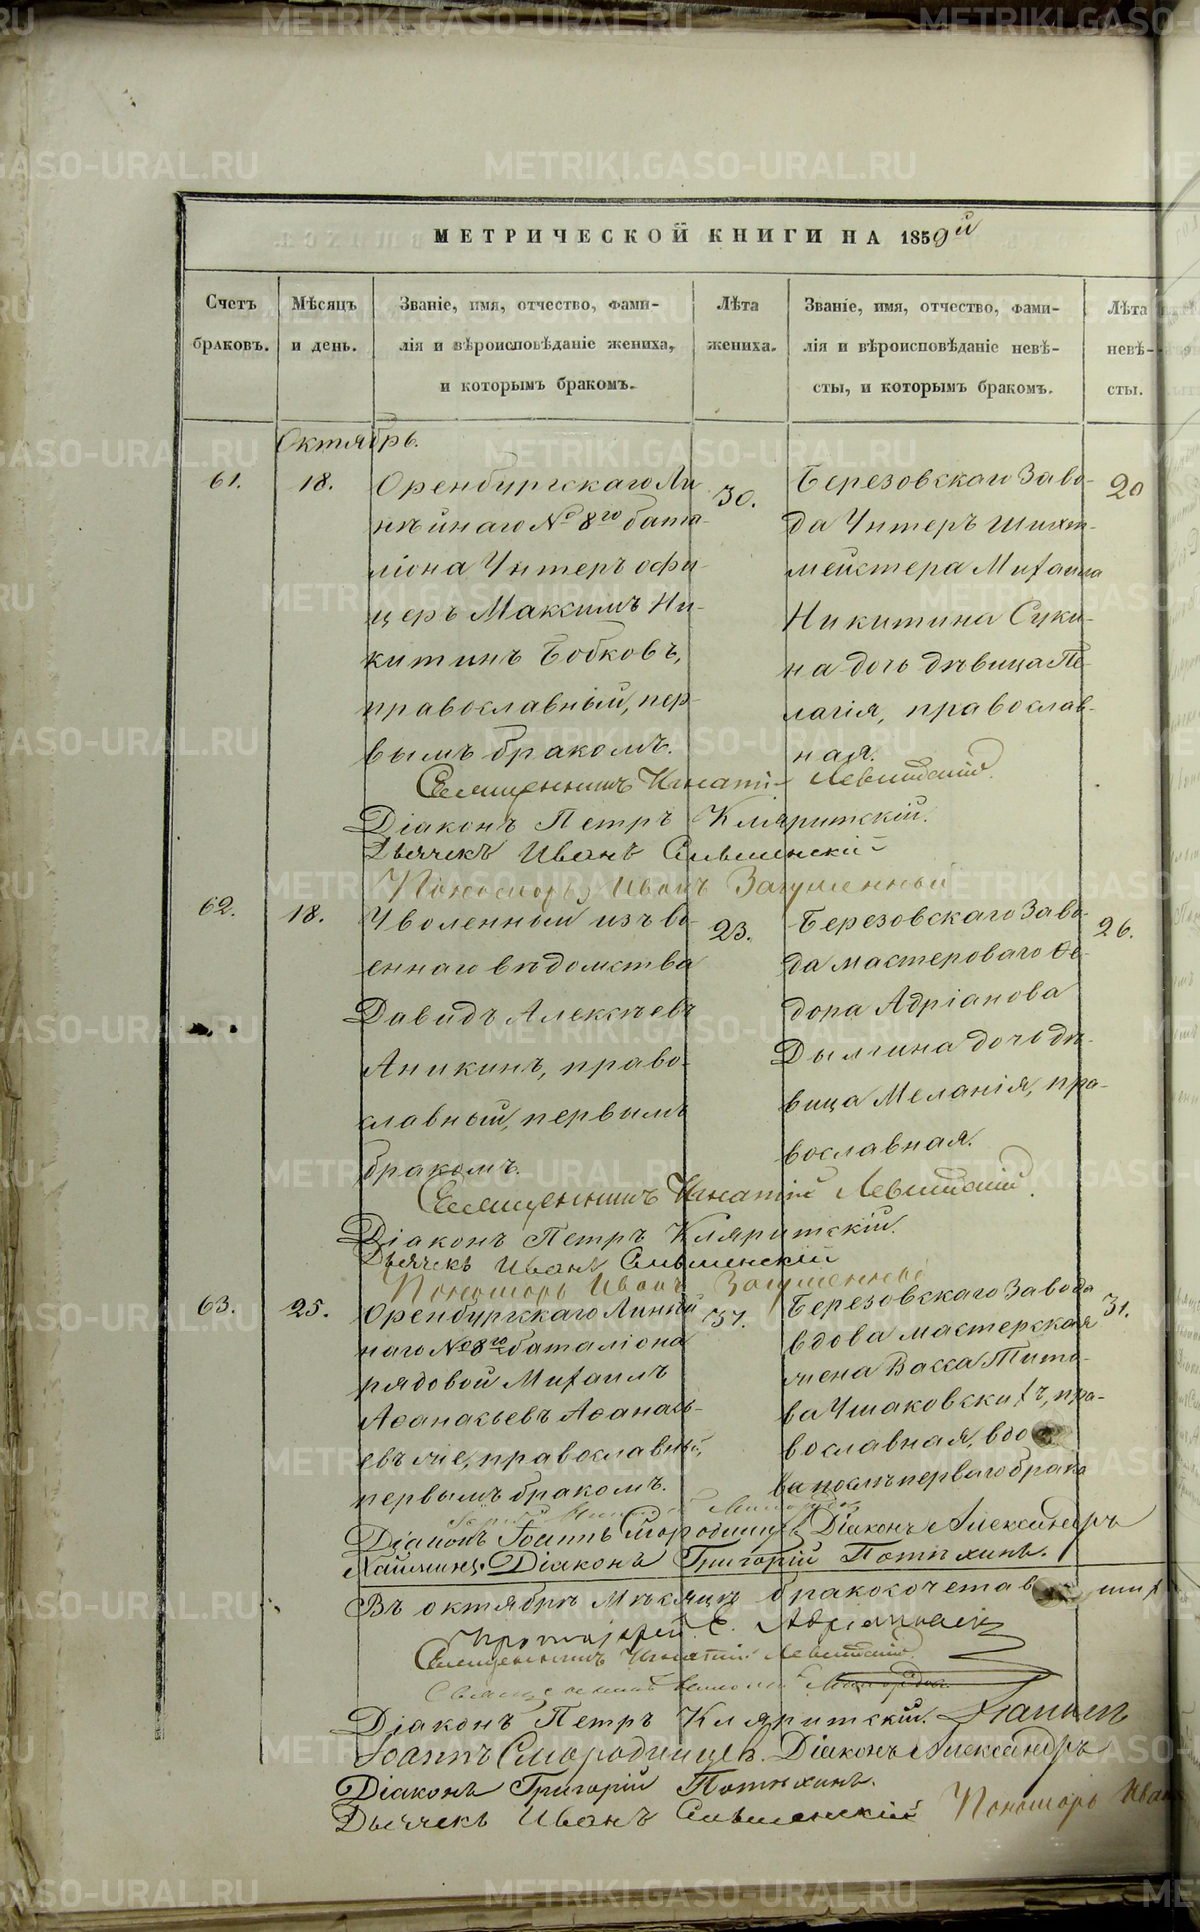 МЕТРИЧЕСКОЙ КНИГИ НА 1859й
Счетъ
браковъ.
Мѣсяцъ
и день.
Званіе, имя, отчество, фами-
лія и вѣроисповѣданіе жениха,
и которымъ бракомъ.
Лѣта
жениха.
Званіе, имя, отчество, фами-
лія и вѣроисповѣданіе невѣ-
сты, и которымъ бракомъ.
Лѣта
невѣ-
сты.
Октябрь.
61.
18.
Оренбургскаго Ли
нѣйнаго № 8го бата-
ліона Унтеръ офи-
церъ Максимъ Ни-
китинъ Бобковъ,
православный, пер-
вымъ бракомъ.
30.
Березовскаго Заво-
да Унтеръ шихт-
мейстера Михаила
Никитина Суки-
на дочь дѣвица Пе-
лагія, православ-
ная.
20
Священникъ Игнатій Левитскій.
Діаконъ Петръ Кляритскій.
Дьячекъ Иванъ Сильвинскій
Пономарь Иванъ
62.
18.
Уволенный изъ во-
еннаго вѣдомства
Давидъ Алексѣевъ
Аникинъ, право-
славный, первымъ
бракомъ.
23.
Березовскаго Заво-
да мастероваго Ѳе-
дора Адріанова
Дылгина дочь дѣ-
вица Меланія, пра-
вославная.
26.
Священникъ Игнатій Левитскій.
Діаконъ Петръ Кляритскій.
Дьячекъ Иванъ Сильвинскій
Пономарь Иванъ
63.
25.
Оренбургскаго Линѣй
наго № 8го баталіона
рядовой Михаилъ
Аѳанасьевъ Аѳанась-
евъ же, православный,
первымъ бракомъ.
37.
Березовскаго Завода
вдова мастерская
жена Васса Тито-
ва Ушаковскихъ, пра-
вославная, вдо
ва послѣ перваго брака
31.
Діаконъ Іоаннъ Смородинцевъ Діаконъ Александръ
Діаконъ Григорій Потѣхинъ.
Въ октябрѣ мѣсяцѣ бракосочетав шихъ
Протоіерей С. Адріановскій
Священникъ Игнатій Левитскій.
Священникъ
Діаконъ Петръ Кляритскій. Діаконъ
Іоаннъ Смородинцевъ. Діаконъ Александръ
Діаконъ Григорій Потѣхинъ.
Дьячекъ Иванъ Сильвинскій Пономарь Иванъ
METRIKI.GASO-URAL.RU